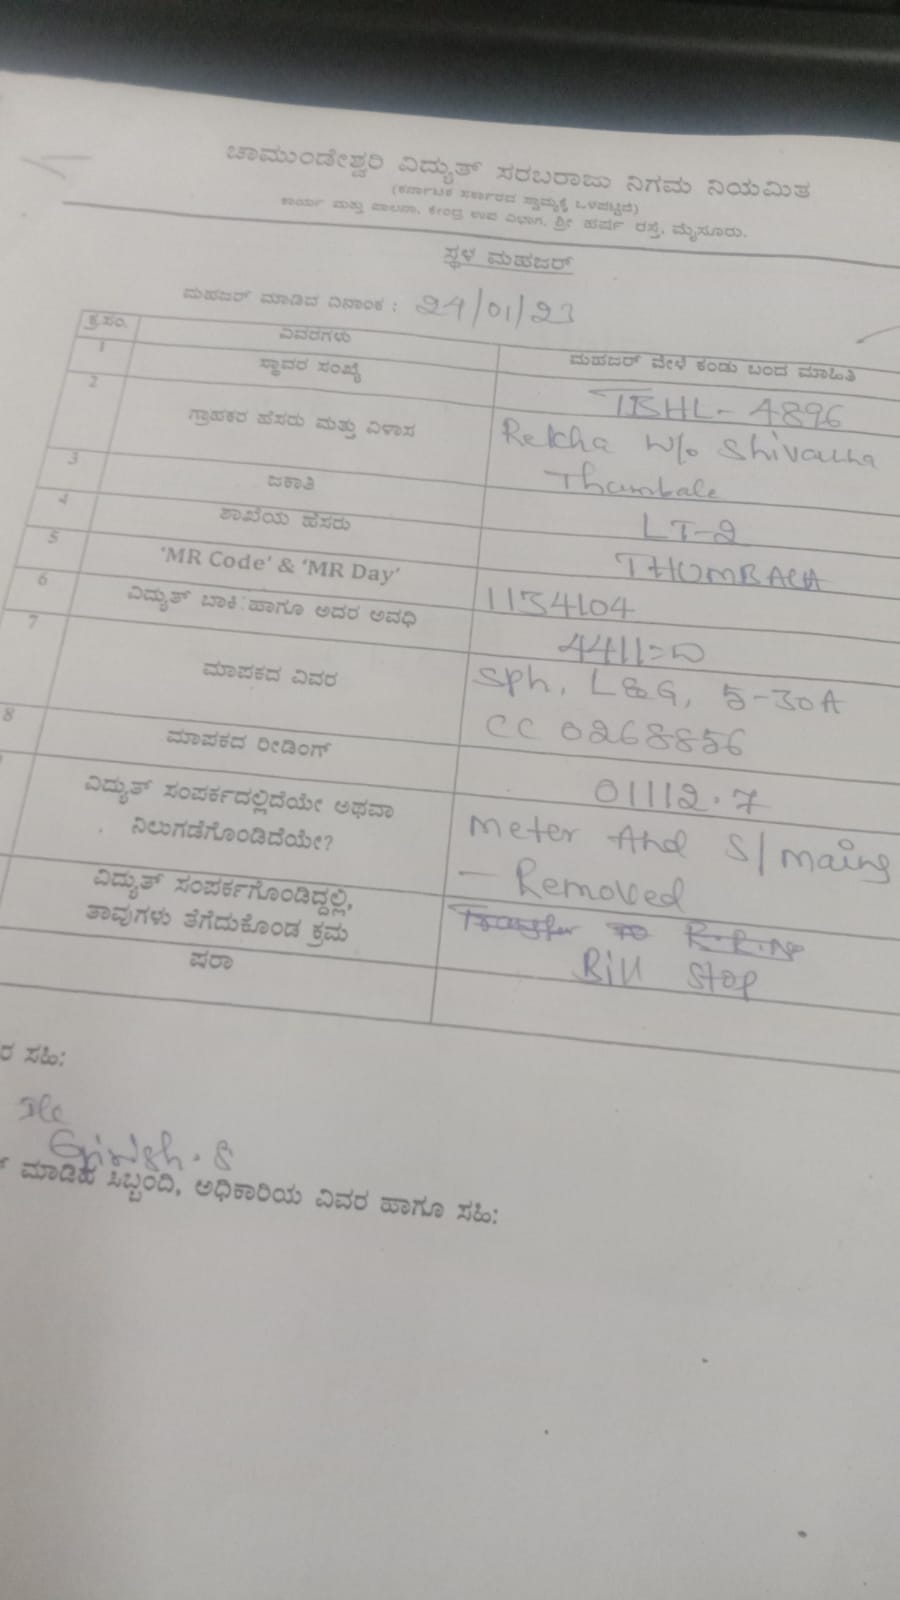 ಚಾಮುಂಡೇಶ್ವರಿ ವಿದ್ಯುತ್ ಸರಬರಾಜು ನಿಗಮ ನಿಯಮಿತ
(ಕರ್ನಾಟಕ ಸರ್ಕಾರದ ಸ್ವಾಮ್ಯಕ್ಕೆ ಒಳಪಟ್ಟಿದೆ)
ಕಾರ್ಯ ಮತ್ತು ಪಾಲನಾ, ಕೇಂದ್ರ ಉಪ ವಿಭಾಗ, ಶ್ರೀ ಹರ್ಷ ರಸ್ತೆ, ಮೈಸೂರು.
ಸ್ಥಳ ಮಹಜರ್
ಮಹಜರ್ ಮಾಡಿದ ದಿನಾಂಕ : 24/01/23
ಕ್ರ.ಸಂ. ವಿವರಗಳು ಮಹಜರ್ ವೇಳೆ ಕಂಡು ಬಂದ ಮಾಹಿತಿ
1 ಸ್ಥಾವರ ಸಂಖ್ಯೆ TBHL-4896
2 ಗ್ರಾಹಕರ ಹೆಸರು ಮತ್ತು ವಿಳಾಸ Rekha W/o
Thumbale
3 ಜಕಾತಿ LT-2
4 ಶಾಖೆಯ ಹೆಸರು
5 'MR Code' & 'MR Day' 1134104
6 ವಿದ್ಯುತ್ ಬಾಕಿ ಹಾಗೂ ಅದರ ಅವಧಿ 4411=00
7 ಮಾಪಕದ ವಿವರ Sph, L&G, 5-30A
CC 0268856
8 ಮಾಪಕದ ರೀಡಿಂಗ್ 01112.7
ವಿದ್ಯುತ್ ಸಂಪರ್ಕದಲ್ಲಿದೆಯೇ ಅಥವಾ
ನಿಲುಗಡೆಗೊಂಡಿದೆಯೇ?
Meter And S/mains
- Removed
ವಿದ್ಯುತ್ ಸಂಪರ್ಕಗೊಂಡಿದ್ದಲ್ಲಿ,
ತಾವುಗಳು ತೆಗೆದುಕೊಂಡ ಕ್ರಮ
Transfer To R.R.No
Bill Stop
ಷರಾ
ರ ಸಹಿ:
Girish.S
ಮಾಡಿಹ ಸಿಬ್ಬಂದಿ, ಅಧಿಕಾರಿಯ ವಿವರ ಹಾಗೂ ಸಹಿ: